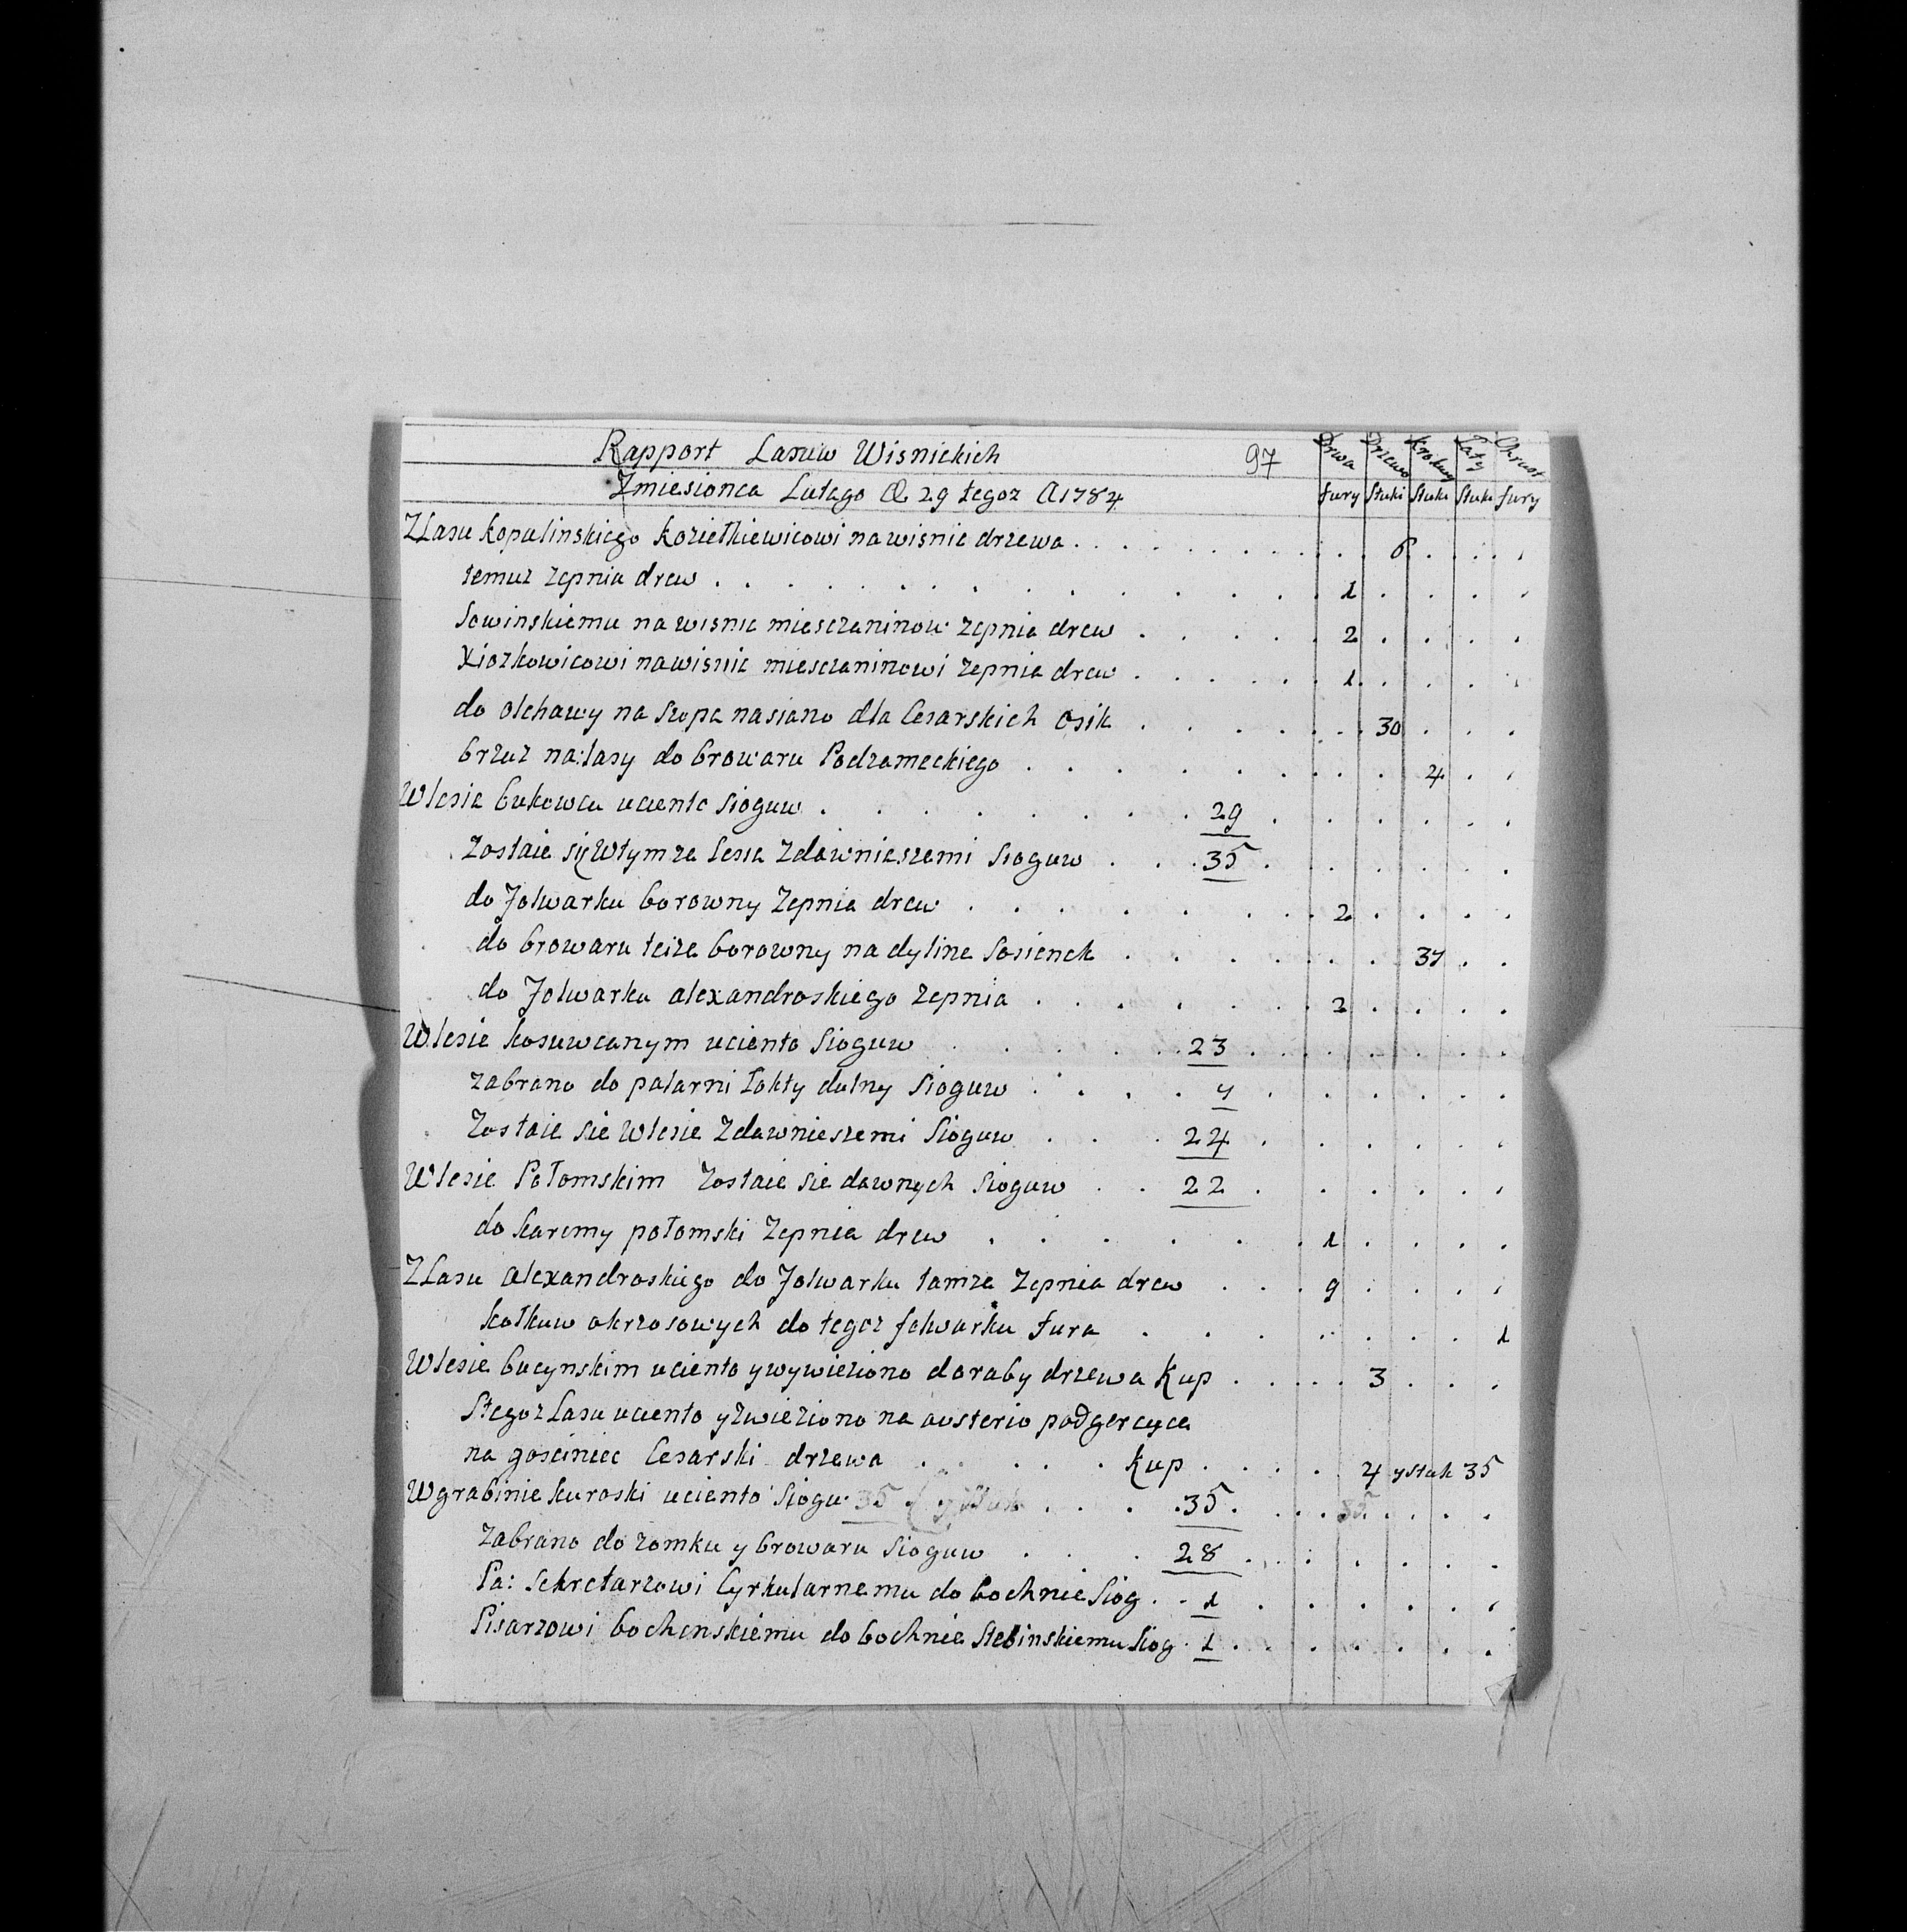 Rapport Lasuw Wisnickich 97 Drwa Drzewo Krokwy Łaty Chrust
Zmiesionca Lutago D 29 tegoz A 1784 fury Stuki Stuki Stuki fury
ZLasu kopalinskiego kozietkiewicowi na wisnic drzewa . . . 6
temuz zepnia drew . . . 1
Sowinskiemu na wisnic miesczaninow zepnia drew . . . 2
Xiozkowicowi nawisnic miesczaninowi zepnia drew . . . 1
do olchawy na szopa nasiano dla Cesarskich osik . . . 30
brzuz na: lasy do browaru Podzameckiego . . . 4
Wlesie bukowcu uciento Sioguw . . . 29
Zostaie się Wtymze lesie Zdawnieszemi Sioguw . . . 35
do Folwarku borowny Zepnia drew . . . 2
do browaru teize borowny na dyline Sosienek . . . 37
do Folwarku alexandroskiego zepnia . . . 2
Wlesie kosuwcanym uciento Sioguw . . . 23
zabrano do palarni Łokty dulny Sioguw . . . 7
Zostaie sie Wlesie Zdawnieszemi Sioguw . . . 24
Wlesie Połomskim Zostaie sie dawnych Sioguw . . 22
do karcmy połomski Zepnia drew . . . 1
ZLasu alexandroskiego do Folwarku tamze Zepnia drew . . . 9
kołkuw okrzosowych do tegoz folwarku fura . . . 1
Wlesie bucynskim uciento ywywieziono doraby drzewa kup . . . 3
Stegoz Lasu uciento yzwieziono na austerio podgercyca
na gosciniec Cesarski drzewa . . . kup . . . 4 y stuk 35
Wgrabinie kuroski uciento Siogu 35 . . . 35 . . . 35
zabrano do zomku y browaru Sioguw . . . 28
Pa: Sekretarzowi Cyrkularnemu do bochnie Siog . . 1
Pisarzowi bochenskiemu do bochnie Stebinskiemu Siog . 1